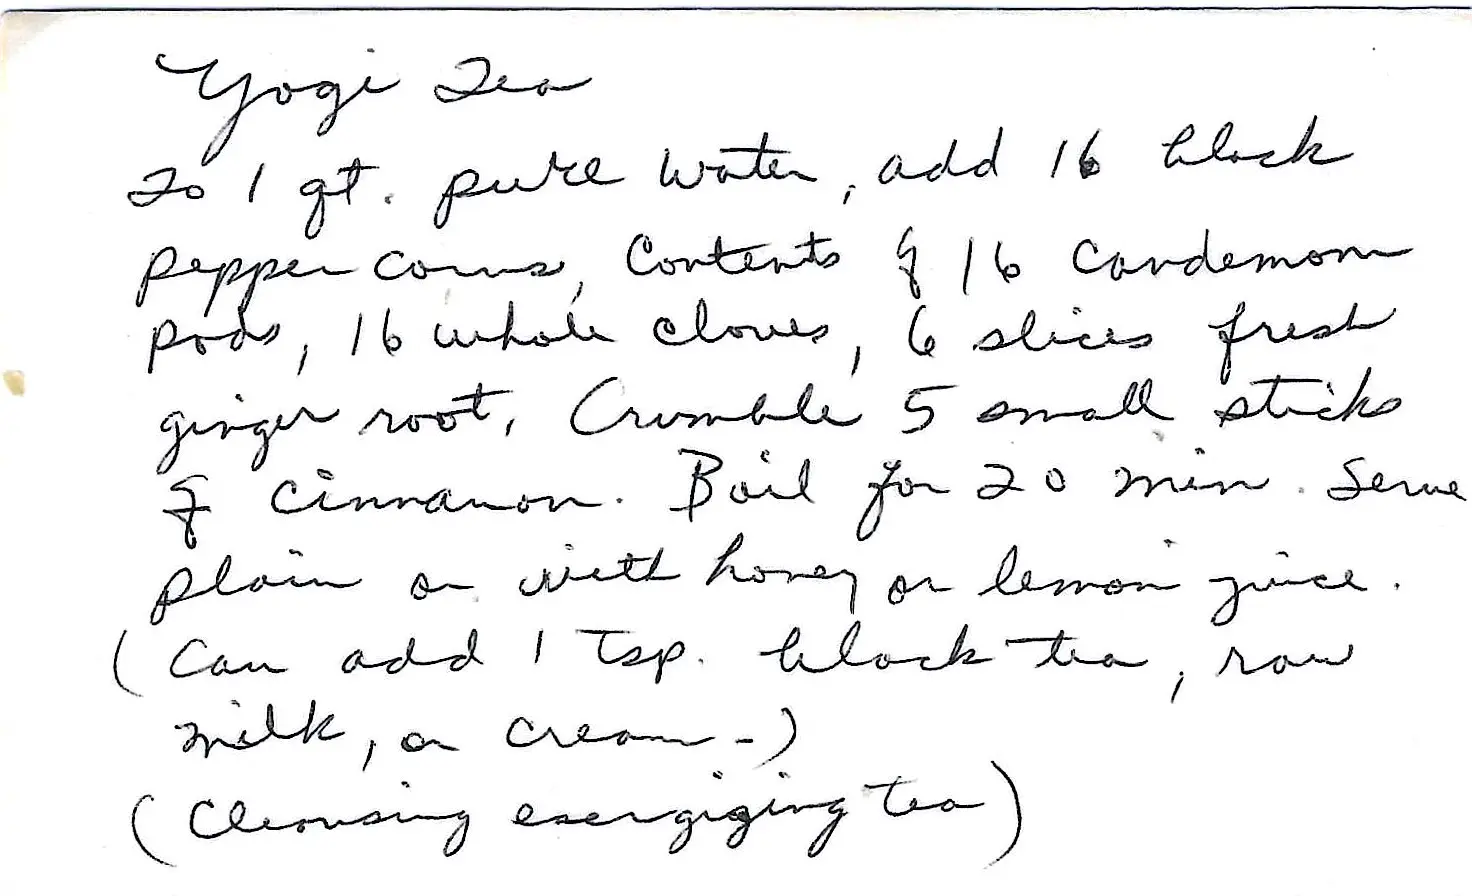 Yogi Tea
To 1 qt. pure water, add 16 black
pepper corns, Contents of 16 Cardemom
pods, 16 whole cloves, 6 slices fresh
ginger root, Crumble 5 small sticks
of cinnamon. Boil for 20 min. Serve
plain or with honey or lemon juice.
(Can add 1 Tsp. black tea, raw
milk, or cream-)
(Cleansing energizing tea)